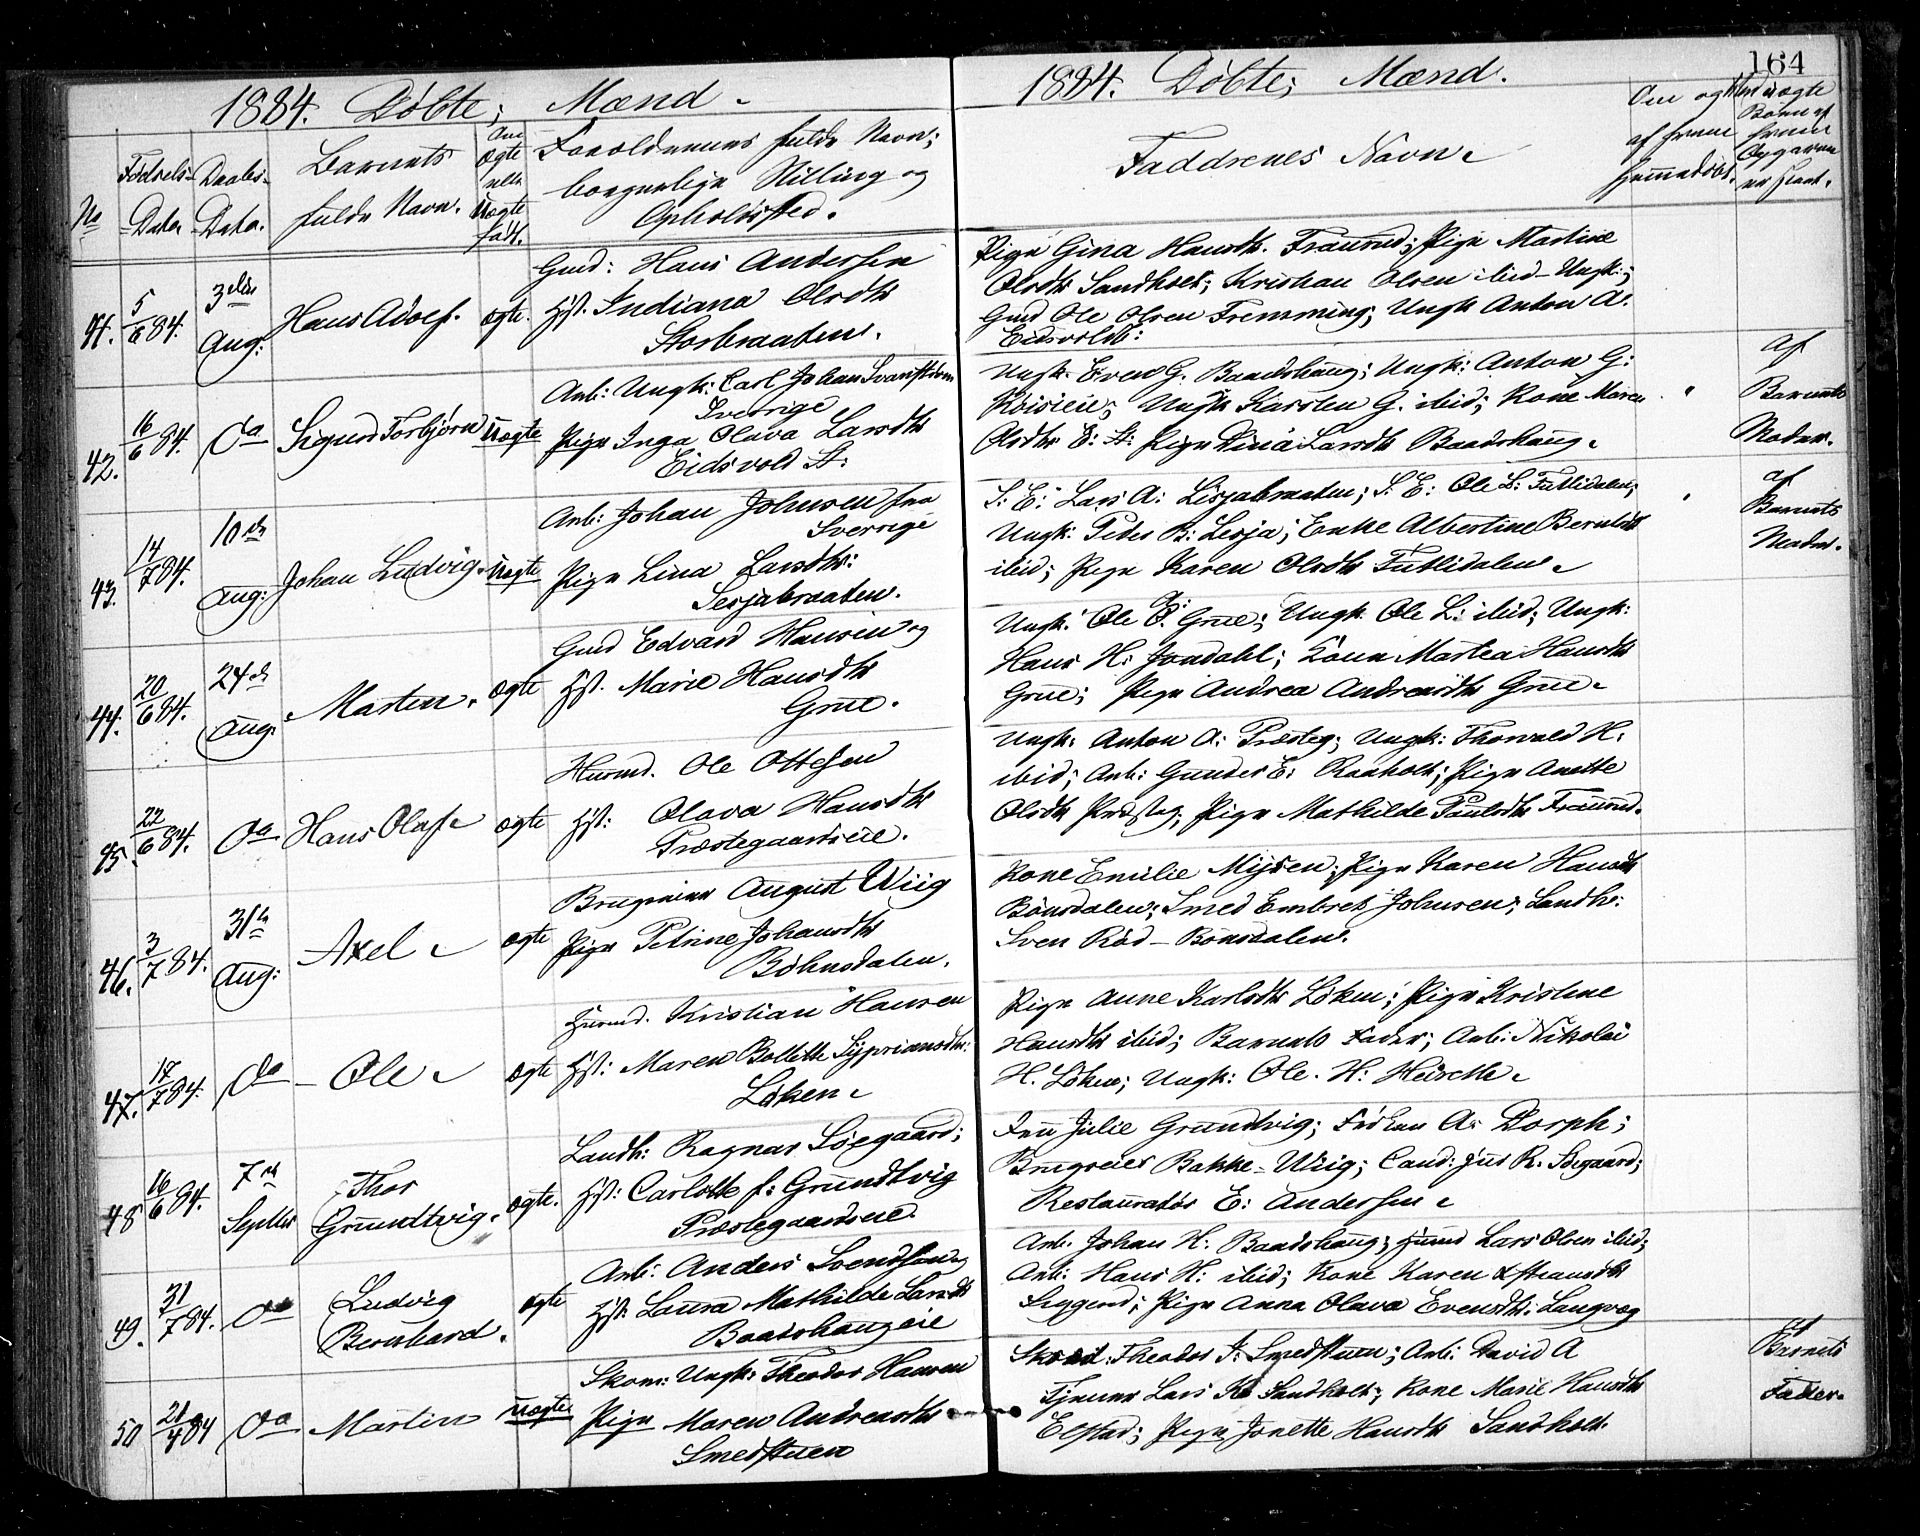 164
1884. Døbte; Mænd.
No
Fødsels-
Data.
Daabs-
Data.
Barnets
fulde Navn.
Om
ægte
eller
uægte
født.
Forældrenes fulde Navn;
borgerlige Stilling og
Opholdssted.
41.
5/6 84.
3die
Aug:
Hans Adolf.
ægte.
Gmd: Hans Andersen
Hst. Indiana Olsdtr
Storbraaten.
42.
16/6 84.
Do
Sigurd Torbjørn
uægte
Arb: Ungk: Carl Johan Svanstrøm
Sverrige
Pige Inga Olava Larsdtr
Eidsvold St:
43.
14/7 84.
10de
Aug:
Johan Ludvig.
uægte
Arb: Johan Johnsen fra
Sverrige
Pige Lina Larsdtr:
Lesjabraaten.
44.
20/6 84.
24de
Aug.
Marten.
ægte
Gmd Edvard Hansen og
Hst. Marie Hansdtr
Grue.
45.
22/6 84.
Do
Hans Olaf.
ægte
Husmd. Ole Ottesen
Hst: Olava Hansdtr
Præstegaardseie.
46.
3/7 84.
31te
Aug:
Axel.
ægte
Brugseier August Wiig
Pige Petrine Johansdtr
Bøhnsdalen.
47.
17/7 84.
Do
Ole.
ægte
Husmd. Kristian Hansen
Hst: Maren Bollette Sypriansdtr:
Løken.
48
16/6 84.
7de
Septbr
Thor
Grundtvig.
ægte.
Landh: Ragnar Søegaard;
Hst: Carlotte f: Grundtvig
Præstegaardseie.
49.
31/7 84.
Do
Ludvig
Bernhard.
ægte
Arb: Anders Svendsen og
Hst. Laura Mathilde Larsdtr
Baadshaugeie
50
21/4 84
Do
Martin
uægte
Skom: Ungk: Theodor Hansen
Pige Maren Andreasdtr
Smedstuen
1884. Døbte; Mænd.
Faddrenes Navn.
Om og
af hvem
hjemmedøbt.
Ved uægte
Børn af
hvem
Opgaven
er skeet.
Pige Gina Hansdtr. Fraurud; Pige Martine
Olsdtr Sandholt; Kristian Olsen ibid - Ungk.;
Gmd Ole Olsen Fremming; Ungk Anton A.
Eidsvoldb:
Ungk. Even G. Baadshaug; Ungk: Anton G:
Køisieie; Ungk Karsten G. ibid; Kone Maren
Olsdtr E: St: Pige Dina Larsdtr Baadshaug.
"
af
Barnets
Moder.
S: E: Lars A: Lesjabraaten; S: E: Ole L: Futlidalen;
Ungk: Peder B: Lesja; Enke Albertine Berntsdtr
ibid; Pige Karen Olsdtr Futlidalen.
"
af
Barnets
Moder.
Ungk. Ole O. Grue; Ungk Ole L: ibid; Ungk:
Hans H: Jondahl; Kone Martea Hansdtr
Grue; Pige Andrea Andreasdtr Grue.
Ungk: Anton A: Præsteg; Ungk: Thorvald H:
ibid; Arb: Gunder E: Raaholt; Pige Anette
Olsdtr Præsteg; Pige Mathilde Paulsdtr Fraurud.
Kone Emilie Mysen; Pige Karen Hansdtr
Bønsdalen; Smed Embret Johnsen; Landh:
Sven Rød - Bønsdalen.
Pige Anne Karlsdtr Løken; Pige Kristine
Hansdtr ibid; Barnets Fader; Arb: Nikolai
H. Løken; Ungk: Ole. H:
Fru Julie Grundtvig; Frøken A: Dorph;
Brugseier Bakke - Wiig; Cand: jus R. Søegaard;
Restauratør E: Andersen.
Arb. Johan H: Baadshaug; Husmd Lars Olsen ibid;
Arb: Hans H: ibid; Kone Karen
Pige Anna Olava Evensdtr: Langvæg
Theodor J: Smedstuen; Arb: David A
Tjener Lars K Sandholt; Kone Marie Hansdtr
Elstad; Pige Jonette Hansdtr Sandholt.
af
Barnets
Fader.